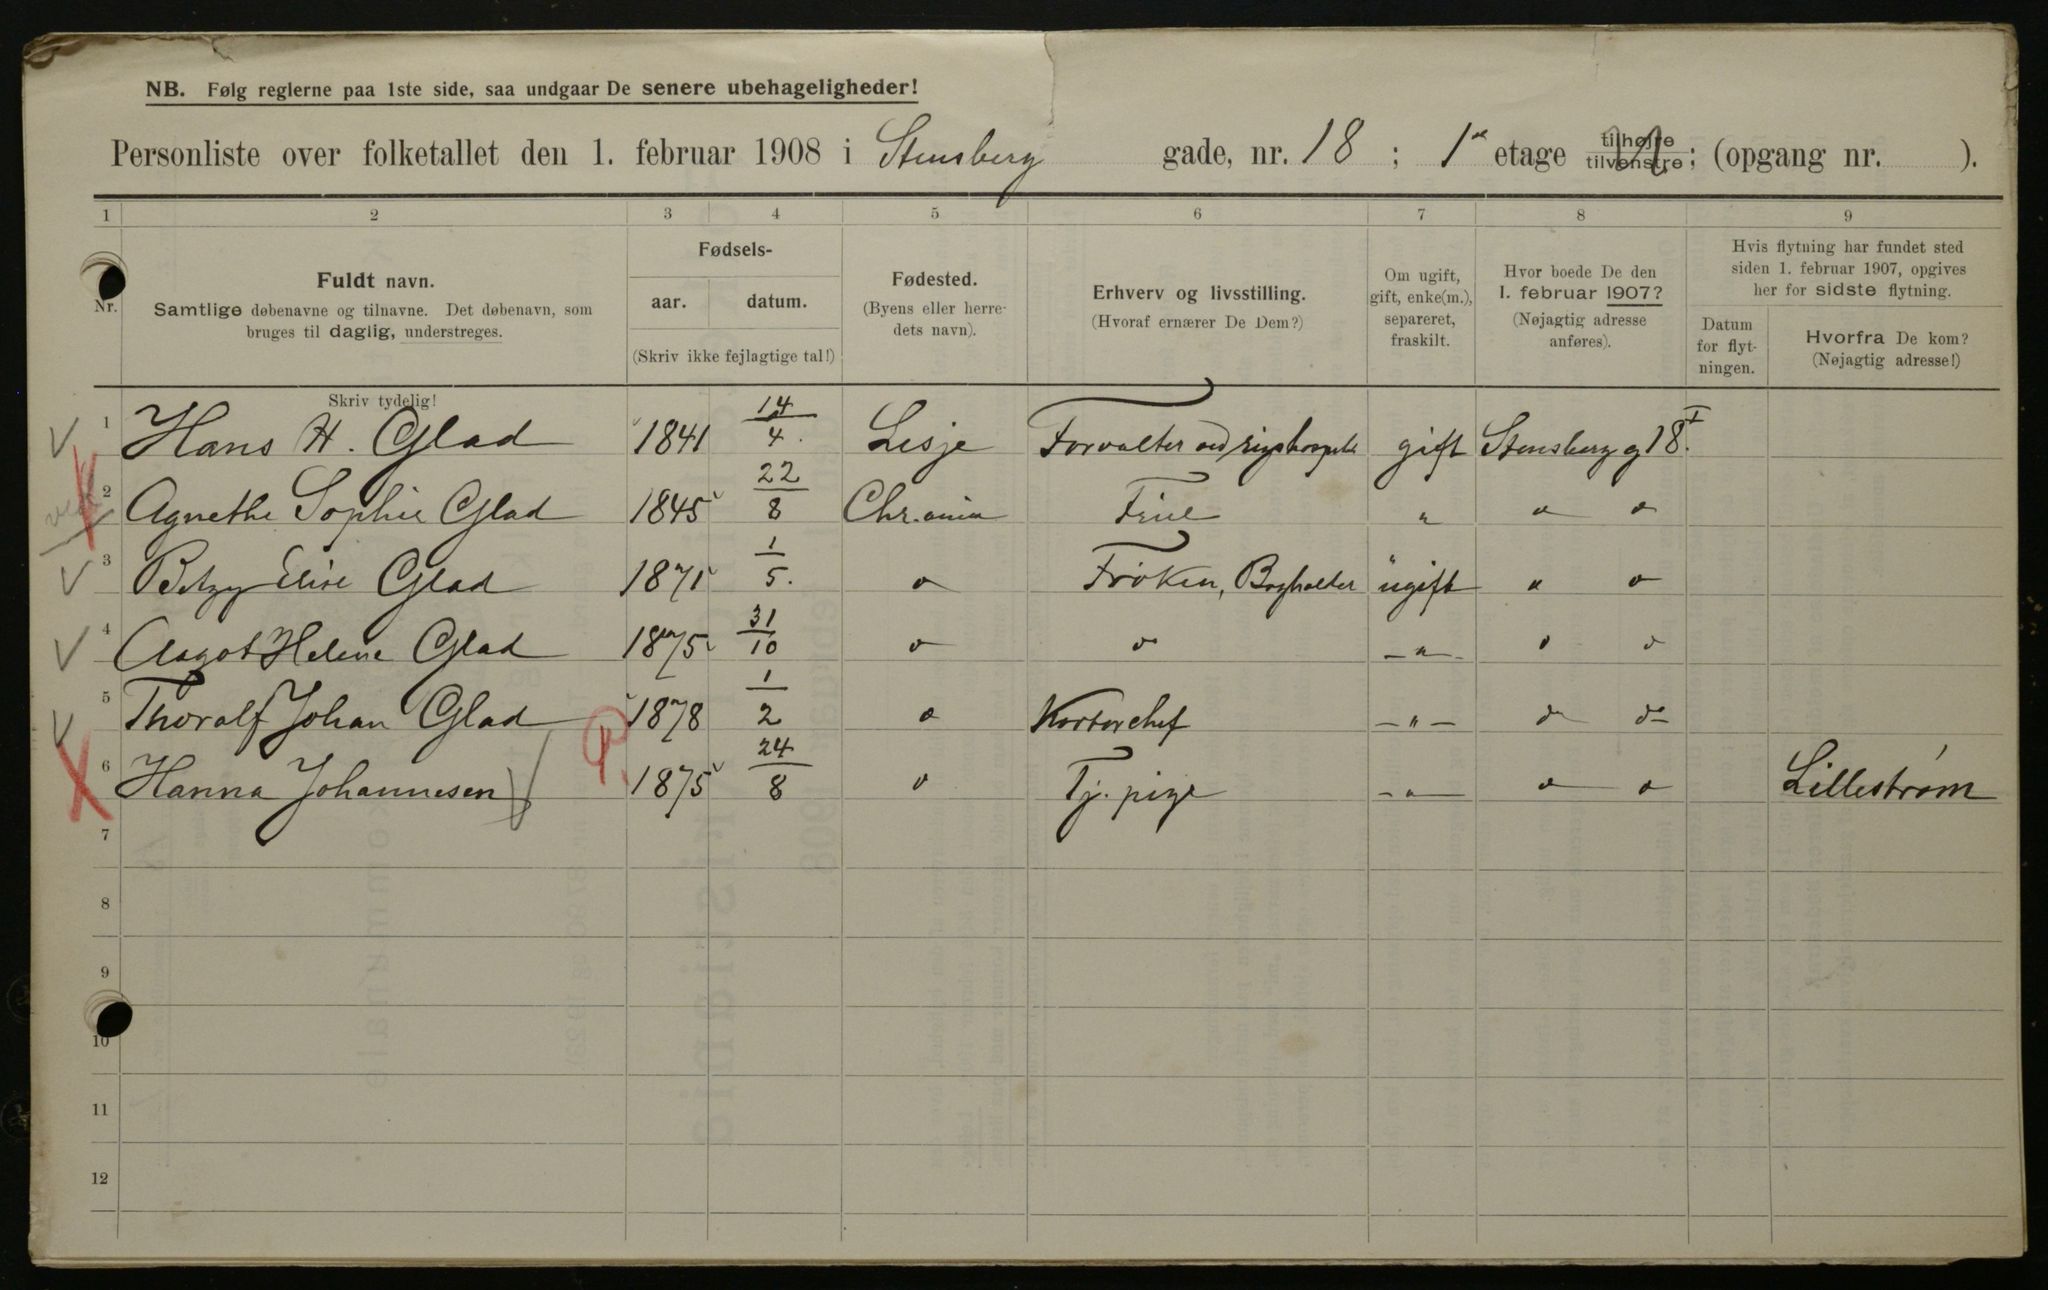 NB. Følg reglerne paa 1ste side, saa undgaar De senere ubehageligheder!
Personliste over folketallet den 1. februar 1908 i Stensberg gade, nr. 18 ; 1ste etage tilhøjre tilvenstre ; (opgang nr. ).
1 2 3 4 5 6 7 8 9
Nr.
Fuldt navn.
Samtlige døbenavne og tilnavne. Det døbenavn, som
bruges til daglig, understreges.
Skriv tydelig!
Fødsels-
aar. datum.
(Skriv ikke fejlagtige tal!)
Fødested.
(Byens eller herre-
dets navn).
Erhverv og livsstilling.
(Hvoraf ernærer De Dem?)
Om ugift,
gift, enke(m.),
separeret,
fraskilt.
Hvor boede De den
1. februar 1907?
(Nøjagtig adresse
anføres).
Hvis flytning har fundet sted
siden 1. februar 1907, opgives
her for sidste flytning.
Datum
for flyt-
ningen.
Hvorfra De kom?
(Nøjagtig adresse!)
1 Hans H. Glad 1841 14/4. Lesje Forvalter ved rigshospit. gift Stensberg g 18 I.
2 Agnethe Sophie Glad 1845 22/8 Chr.ania Frue " " "
3 Betzy Elise Glad 1871 1/5. " Frøken, Bogholder ugift " "
4 Aagot Helene Glad 1875 31/10 " " — " — " "
5 Thoralf Johan Glad 1878 1/2 " Kontorchef — " — " "
6 Hanna Johannesen P. 1875 24/8 " Tj. pige — " — " " Lillestrøm
7
8
9
10
11
12